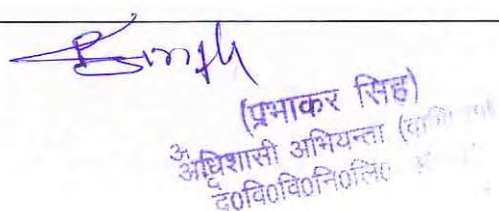 P Singh
(प्रभाकर सिंह)
अधिशासी अभियन्ता
द0वि0वि0नि0लि0